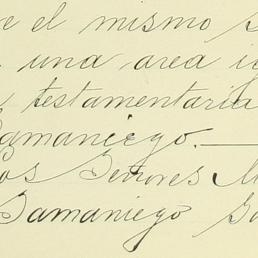 el mismo
una area
testamentaria
Samaniego.—
Los Señores M
Samaniego